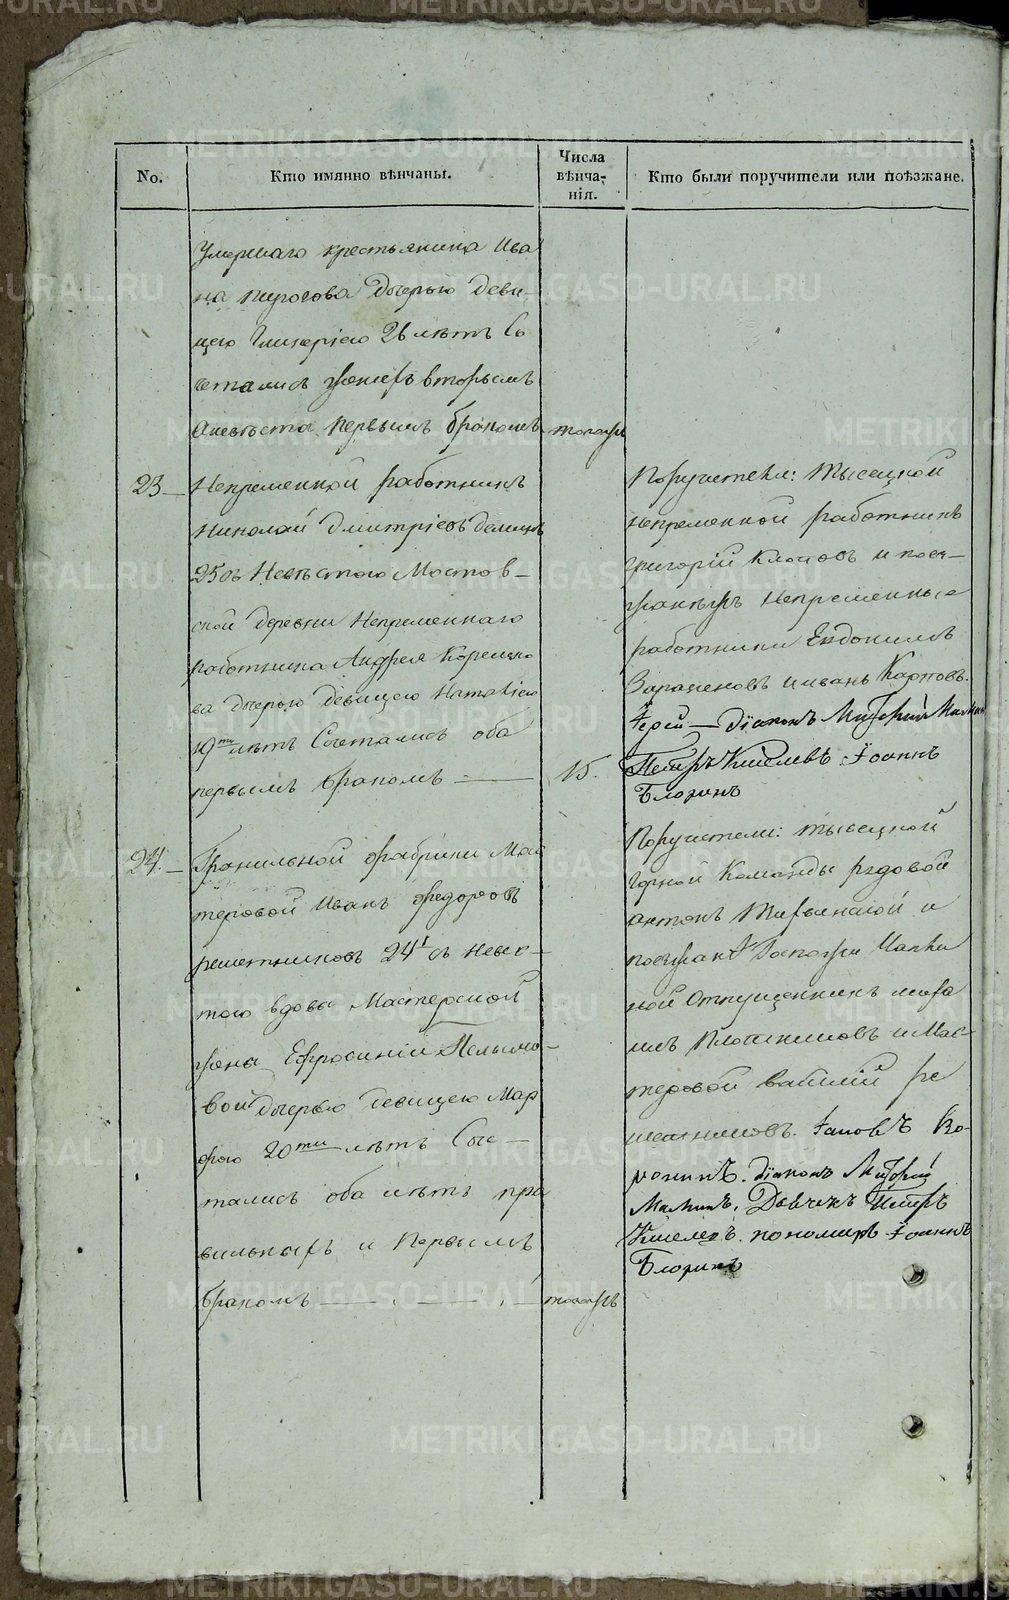 No.
Кто имянно вѣнчаны.
Числа
вѣнча-
нія.
Кто были поручители или поѣзжане.
Умершаго крестьянина Ива
на Пирогова дочерью деви-
цею Гликеріею 26 лѣтъ Со
четались женихъ вторымъ
а невѣста первымъ бракомъ
тогожъ
23
Непременной работникъ
Николай Дмитріевъ
25 съ Невѣстою Мостов-
ской деревни Непременнаго
работника Андрея Корелко
ва дочерью девицею Наталіею
19ти лѣтъ Сочетались оба
первымъ бракомъ
15.
Поручители: тысецкой
непременной работникъ
Григорій Клоповъ и поез-
жанѣхъ непременные
работники Евдокимъ
и иванъ Карповъ.
Іерей Діаконъ
Петръ Киселевъ Іоаннъ
Блоринъ
24.
Гранильной фабрики Мас
теровой Иванъ Федоровъ
решетниковъ 24 съ Невес-
тою вдова Мастерской
жена Ефросиніи
вой дочерью девицею Мар
фою 20ти лѣтъ Соче-
тались оба лѣтъ пра
вильныхъ и Первымъ
бракомъ
тогожъ
Поручители: тысецкой
горной Команды рядовой
антонъ и
поезжан Госпожи
ной Отпущенникъ
илъ Плотниковъ и Мас-
теровой василій ре
шетниковъ. Іаковъ Во-
ронинъ. діаконъ
Малинъ. Дьячекъ Петръ
Киселев. пономарь Іоаннъ
Блоринъ
METRIKI.GASO-URAL.RU